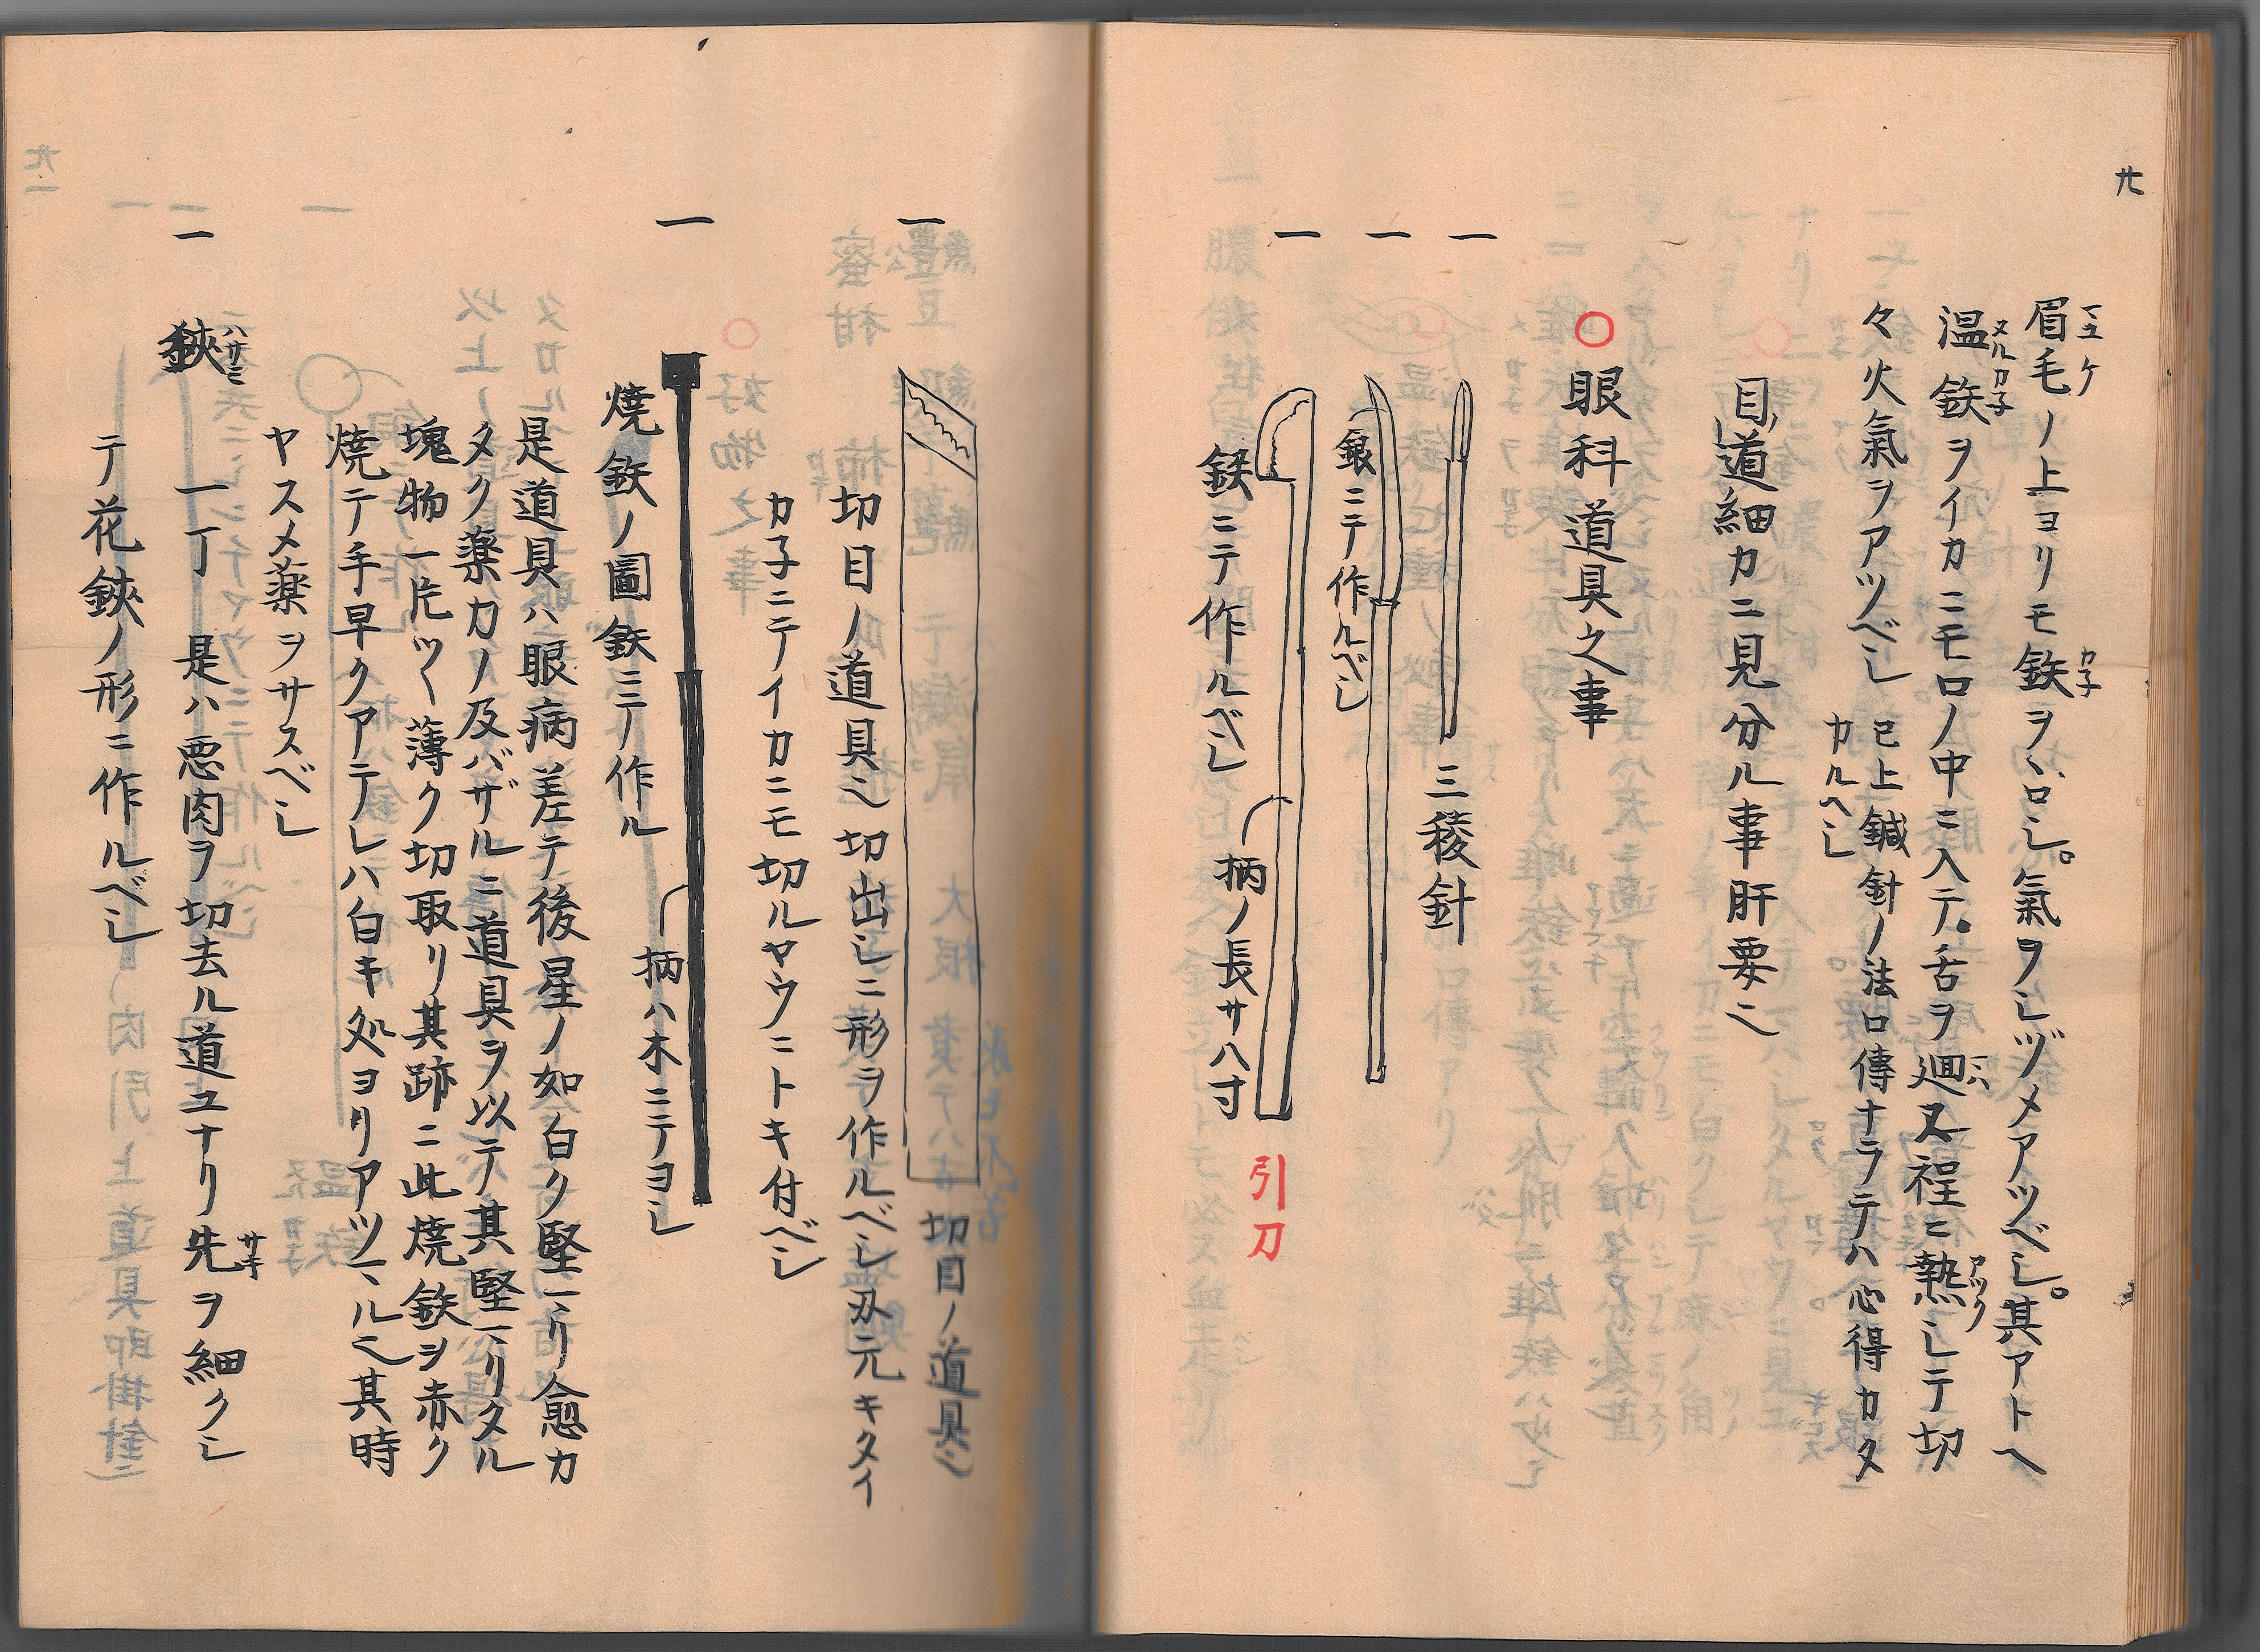 廿
眉毛ノ上ヨリモ鉄ヲヽロシ。氣ヲシヅメアツベシ。其アトヘ
マユケ
カ子
温鉄ヲイカニモロノ中ニ入テ。舌ヲ廻又程ニ熱シテ切
ヌルカ子
アツク
々火氣ヲアツベシ
已上鍼針ノ法口傳ナラテハ心得カタ
カルヘシ
目道細カニ見分ル事肝要也
○眼科道具之事
一
三稜針
一
銀ニテ作ルベシ
一
鉄ニテ作ルベシ
柄ノ長サ八寸
引刀
一
切目ノ道具也
切目ノ道具也切出シニ形ヲ作ルベシ刄元キタイ
カ子ニテイカニモ切ルヤウニトキ付ベシ
一
焼鉄ノ圖鉄ニテ作ル
柄ハ木ニテヨシ
是道具ハ眼病差テ後星ノ如白ク堅マリ愈カ
タク薬力ノ及バザルニ道具ヲ以テ其堅マリタル
塊物一片ツヽ薄ク切取リ其跡ニ此焼鉄ヲ赤ク
焼テ手早クアテレハ白キ処ヨリアツマル也其時
ヤスメ薬ヲサスベシ
一
鋏
ハサミ
一丁 是ハ悪肉ヲ切去ル道ユナリ先ヲ細クシ
サキ
テ花鋏ノ形ニ作ルベシ